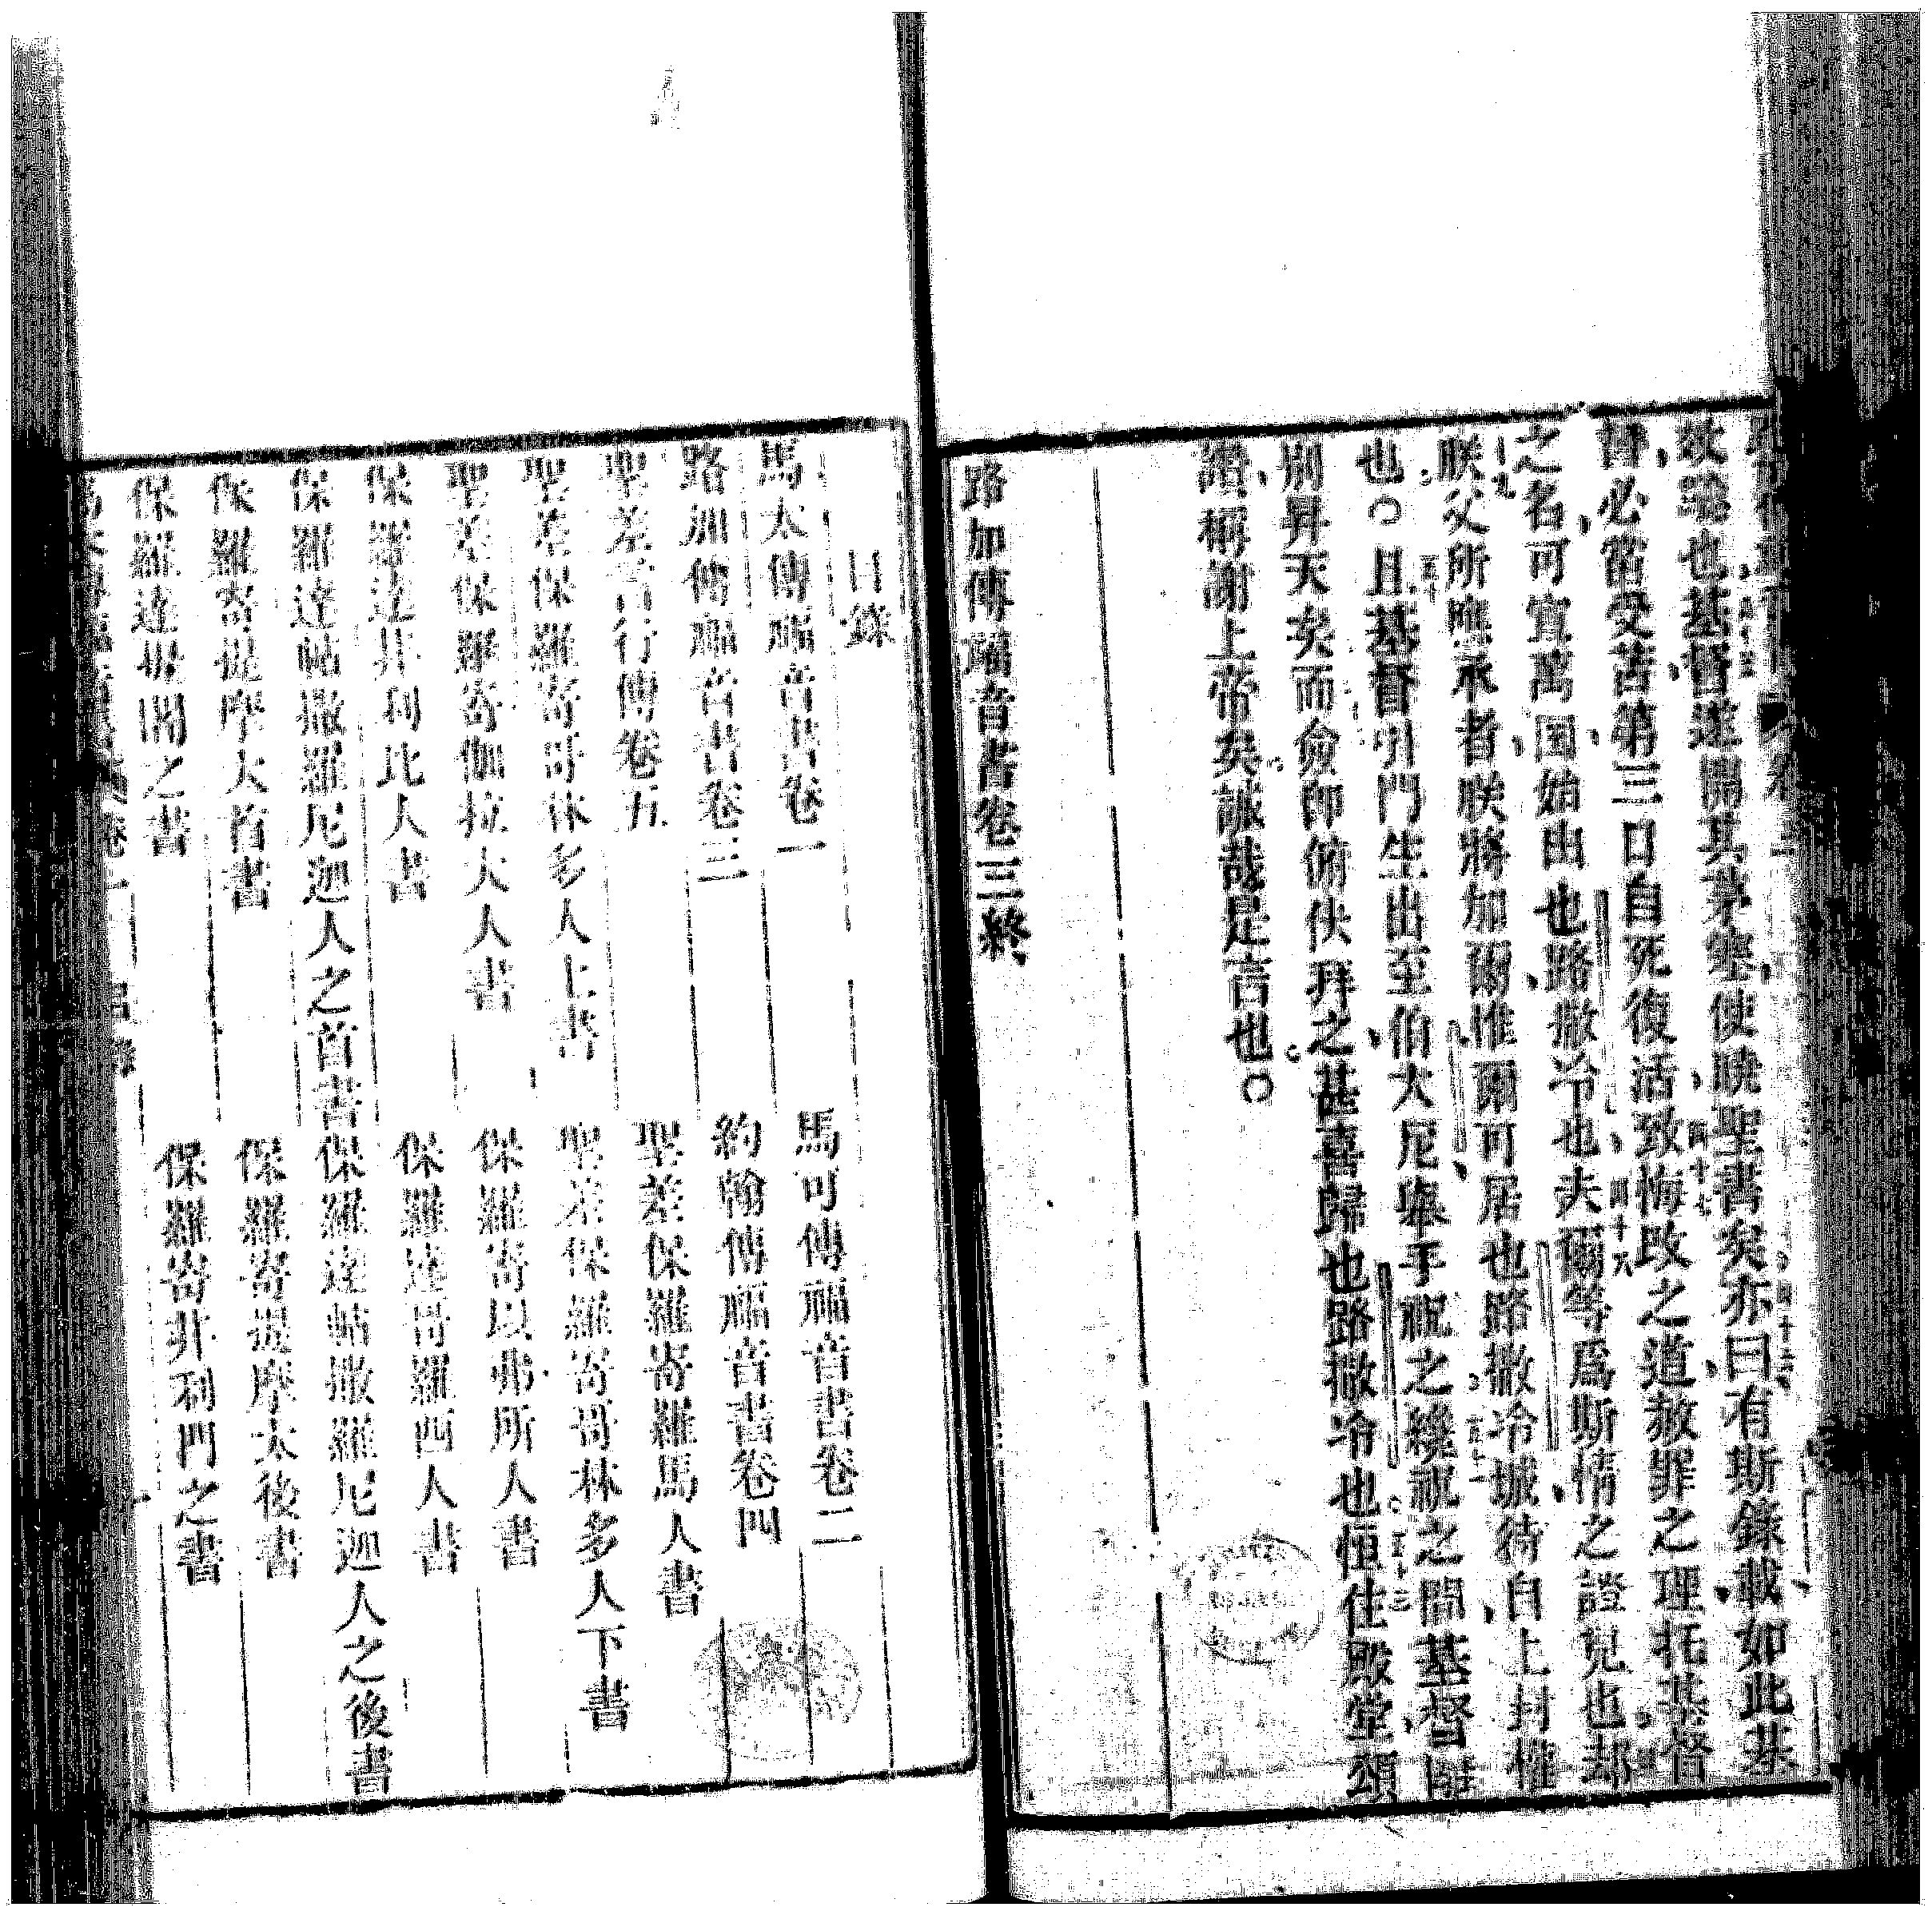 致諭也基督遂開其茅塞使曉聖書矣亦曰有斯錄載如此基
督必當受苦第三日自死復活致悔改之道赦罪之理托基督
之名可宣萬国始出也路撒冷也夫爾等為斯情之證見也却
朕父所應承者朕將加爾惟爾可居也路撒冷城待自上封權
也〇且基督引門生出至伯大尼舉手祝之纔祝之間基督
別昇天矣而僉即俯伏拜之甚喜歸也路撒冷也恒住殿堂頌
讚稱謝上帝矣誠哉是言也〇
路加傳福音書卷三終
目錄
馬太傳福音書卷一 馬可傳福音書卷二
路加傳福音書卷三 約翰傳福音書卷四
聖差言行傳卷五 聖差保羅寄羅馬人書
聖差保羅寄哥林多人上書 聖差保羅寄哥林多人下書
聖差保羅寄伽拉太人書 保羅寄以弗所人書
保羅達非利比人書 保羅達哥羅西人書
保羅達帖撒羅尼迦人之首書 保羅達帖撒羅尼迦人之後書
保羅寄提摩太首書 保羅寄提摩太後書
保羅達 之書 保羅寄非利門之書